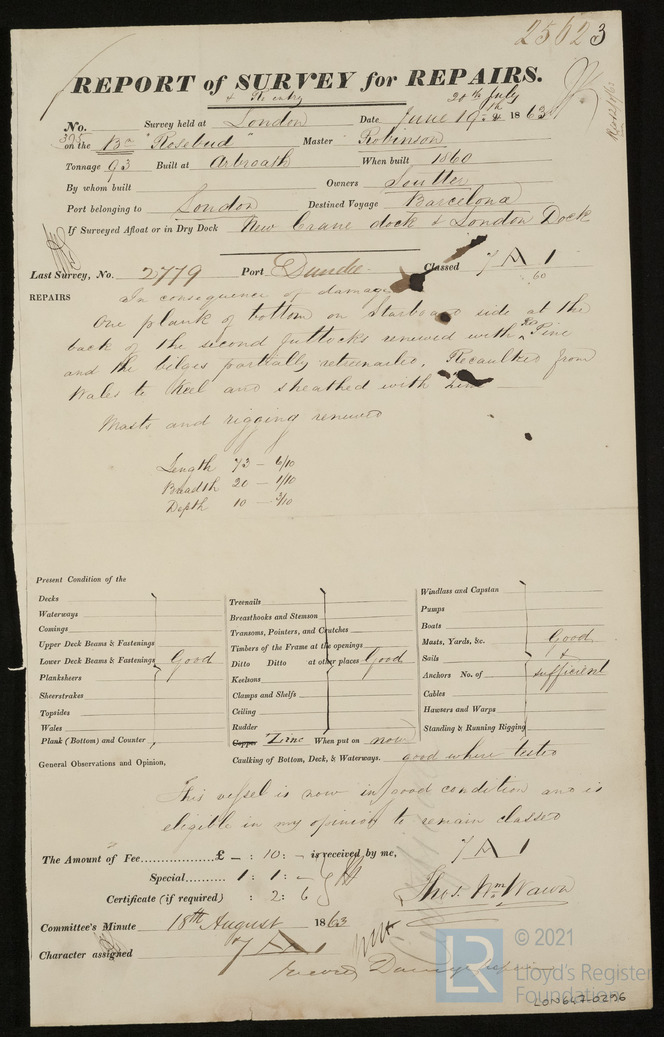 25623
REPORT of SURVEY for REPAIRS.
20th July
No. 395 Survey held at London Date June 19th 1863
on the Bn "Rosebud" Master Robinson
Tonnage 93 Built at Arbroath When built 1860
By whom built Owners Soutter
Port belonging to London Destined Voyage Barcelona
If Surveyed Afloat or in Dry Dock New Crane dock & London Dock
Last Survey, No. 2779 Port Dundee Classed 7 A 1
60
REPAIRS In consequence of damage
One plank of bottom on Starboard side at the
back of the second futtocks renewed with Pine
and the bilges partially retreenailed, Recaulked from
Wales to Keel and sheathed with Zinc
Masts and rigging renewed
Length 73 - 6/10
Breadth 20 - 1/10
Depth 10 - /10
Present Condition of the
Decks
Waterways
Comings
Upper Deck Beams & Fastenings
Lower Deck Beams & Fastenings Good
Planksheers
Sheerstrakes
Topsides
Wales
Plank (Bottom) and Counter
Treenails
Breasthooks and Stemson
Transoms, Pointers, and Crutches
Timbers of the Frame at the openings
Ditto Ditto at other places Good
Keelsons
Clamps and Shelfs
Ceiling
Rudder
Copper Zinc When put on now
Caulking of Bottom, Deck, & Waterways. good where tested
Windlass and Capstan
Pumps
Boats
Masts, Yards, &c. Good
Sails &
Anchors No. of sufficient
Cables
Hawsers and Warps
Standing & Running Rigging
General Observations and Opinion,
This vessel is now in good condition and is
eligible in my opinion to remain classed
7 A 1
The Amount of Fee £ - : 10 : - is received by me,
Special 1 : 1 : -
Certificate (if required) : 2 : 6
Thos. Wm. Wawn
Committee's Minute 18th August 1863
Character assigned 7 A 1
© 2021
LR
Lloyd's Register
Foundation
LON647-0296